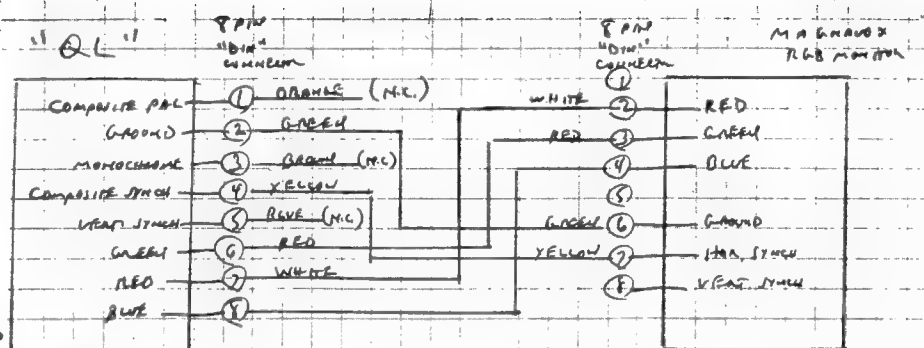 "QL"
8 PIN
"DIN"
CONNECTOR
8 PIN
"DIN"
CONNECTOR
MAGNAVOX
RGB MONITOR
COMPOSITE PAL 1 ORANGE (N.C.)
GROUND 2 GREEN
MONOCHROME 3 BROWN (N.C)
COMPOSITE SYNCH 4 YELLOW
VERT SYNCH 5 BLUE (N.C)
GREEN 6 RED
RED 7 WHITE
BLUE 8
1
WHITE 2 RED
RED 3 GREEN
4 BLUE
5
GREEN 6 GROUND
YELLOW 7 HOR. SYNCH
8 VERT SYNCH